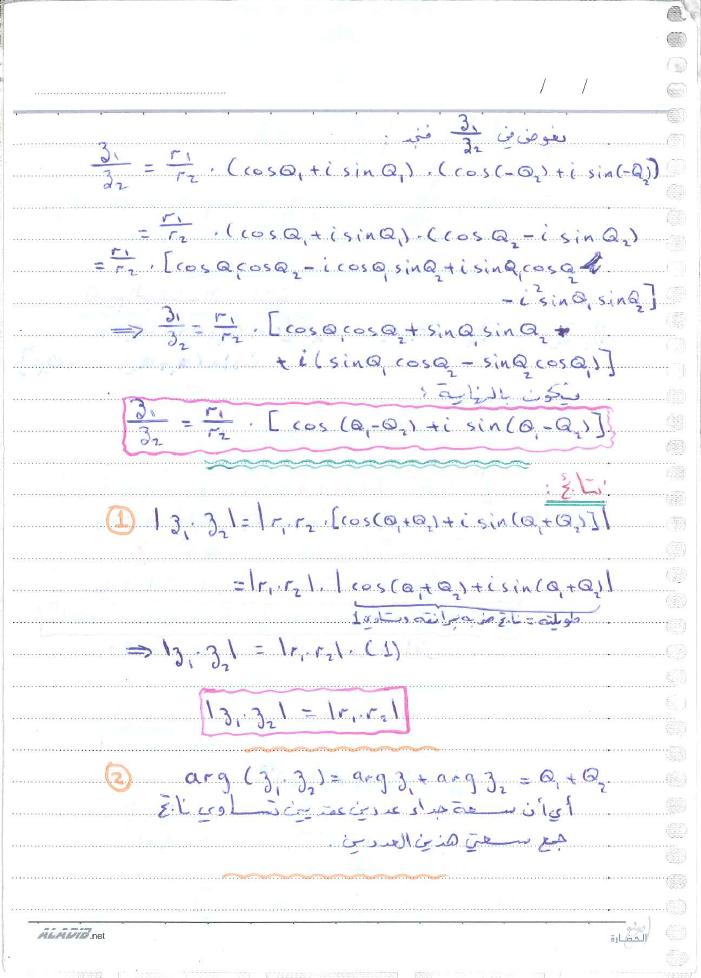 / /
نعوض في z₁/z₂ فنجد :
z₁/z₂ = r₁/r₂ . (cosQ₁ + i sinQ₁) . (cos(-Q₂) + i sin(-Q₂))
= r₁/r₂ . (cosQ₁ + i sinQ₁) . (cosQ₂ - i sinQ₂)
= r₁/r₂ . [cosQ₁cosQ₂ - i cosQ₁sinQ₂ + i sinQ₁cosQ₂
- i² sinQ₁ sinQ₂]
⇒ z₁/z₂ = r₁/r₂ . [cosQ₁cosQ₂ + sinQ₁sinQ₂ +
+ i(sinQ₁ cosQ₂ - sinQ₂ cosQ₁)]
فيكون بالنهاية :
z₁/z₂ = r₁/r₂ . [cos(Q₁-Q₂) + i sin(Q₁-Q₂)]
نتائج :
① |z₁.z₂| = |r₁.r₂.[cos(Q₁+Q₂) + i sin(Q₁+Q₂)]|
= |r₁.r₂| . |cos(Q₁+Q₂) + i sin(Q₁+Q₂)|
طويلته = ناتج ضربه بمرافقه وتساوي 1
⇒ |z₁.z₂| = |r₁.r₂| . (1)
|z₁.z₂| = |r₁.r₂|
② arg(z₁.z₂) = arg z₁ + arg z₂ = Q₁ + Q₂
أي أن سعة جداء عددين عقديين تساوي ناتج
جمع سعتي هذين العددين .
ALADIB.net
الحضارة